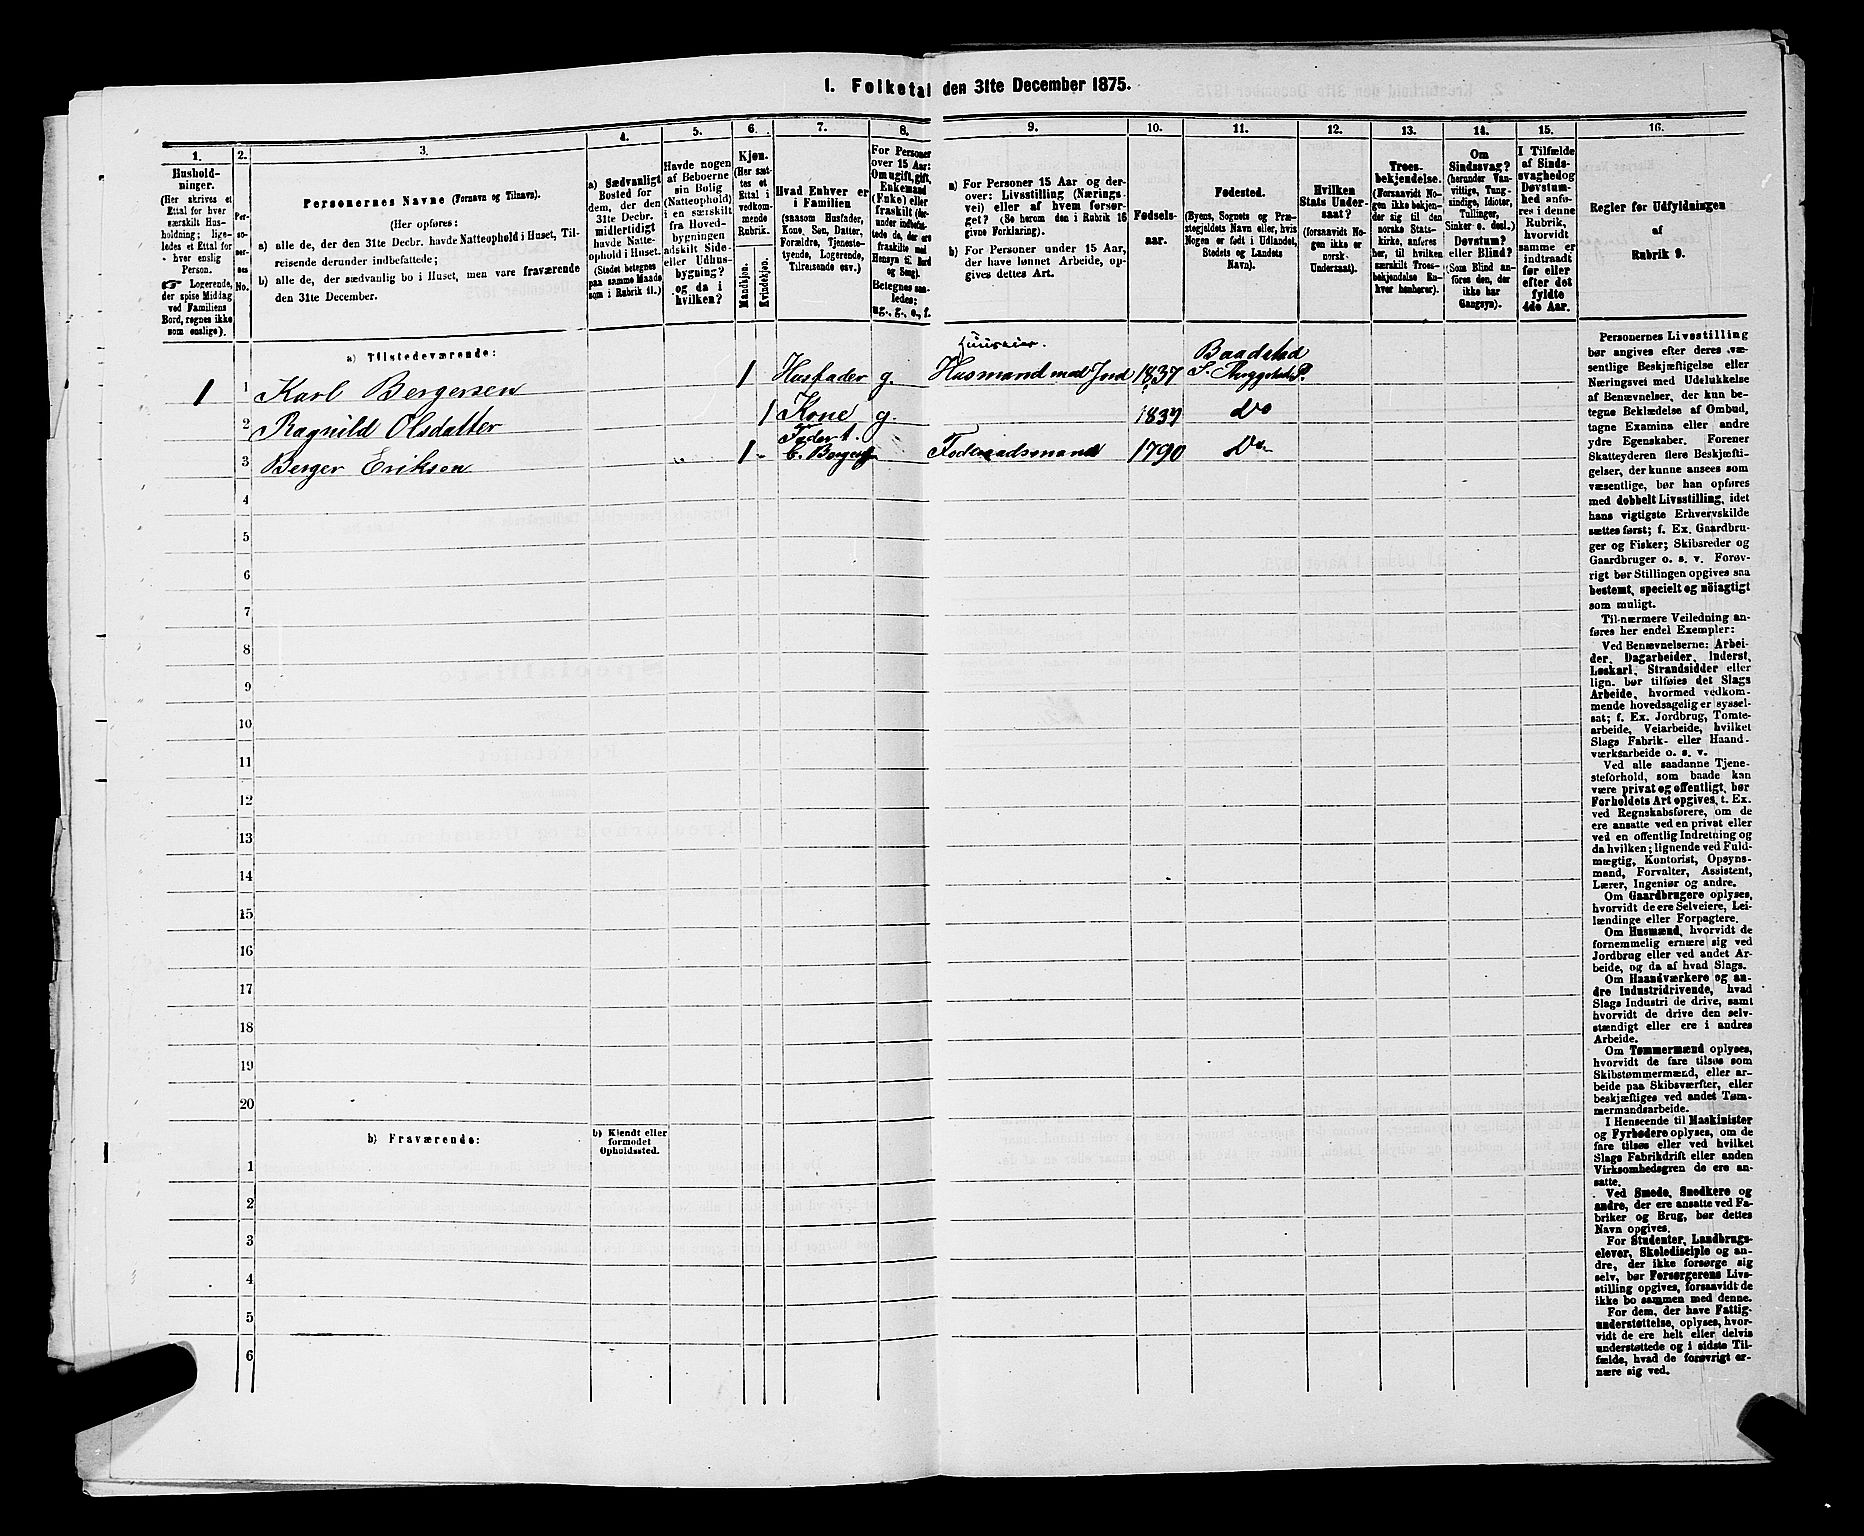 1. Folketal den 31te December 1875.
1.
Hushold-
ninger.
(Her skrives et
Ettal for hver
særskilt Hus-
holdning; lige-
ledes et Ettal for
hver enslig
Person.
☞ Logerende,
der spise Middag
ved Familiens
Bord, regnes ikke
som enslige).
2.
Per-
so-
ner-
nes
No.
3.
Personernes Navne (Fornavn og Tilnavn).
(Her opføres:
a) alle de, der den 31te Decbr. havde Natteophold i Huset, Til-
reisende derunder indbefattede;
b) alle de, der sædvanlig bo i Huset, men vare fraværende
den 31te December.
4.
a) Sædvanligt
Bosted for
dem, der den
31te Decbr.
midlertidigt
havde Natte-
ophold i Huset.
(Stedet betegnes
paa samme Maade
som i Rubrik 11.)
5.
Havde nogen
af Beboerne
sin Bolig
(Natteophold)
i en særskilt
fra Hoved-
bygningen
adskilt Side-
eller Udhus-
bygning?
og da i
hvilken?
6.
Kjøn.
(Her sæt-
tes et
Ettal i
vedkom-
mende
Rubrik.
Mandkjøn.
Kvindekjøn.
7.
Hvad Enhver er
i Familien
(saasom Husfader,
Kone, Søn, Datter,
Forældre, Tjeneste-
tyende, Logerende,
Tilreisende osv.)
8.
For Personer
over 15 Aar:
Om ugift, gift,
Enkemand
(Enke) eller
fraskilt (her-
under indbefat-
tede de, der ere
fraskilte med
Hensyn til Bord
og Seng).
Betegnes saa-
ledes:
ug., g., e., f.
9.
a) For Personer 15 Aar og der-
over: Livsstilling (Nærings-
vei) eller af hvem forsør-
get? (Se herom den i Rubrik 16
givne Forklaring).
b) For Personer under 15 Aar,
der have lønnet Arbeide, op-
gives dettes Art.
10.
Fødsels-
aar.
11.
Fødested.
(Byens, Sognets og Præ-
stegjeldets Navn eller, hvis
Nogen er født i Udlandet,
Stedets og Landets
Navn).
12.
Hvilken
Stats Under-
saat?
(forsaavidt No-
gen ikke er
norsk
Undersaat).
13.
Troes-
bekjendelse.
(Forsaavidt No-
gen ikke bekjen-
der sig til den
norske Stats-
kirke, anføres
her, til hvilken
særskilt Troes-
bekjendelse En-
hver henhører).
14.
Om
Sindssvag?
(herunder Van-
vittige, Tung-
sindige, Idioter,
Tullinger,
Sinker o. desl.)
Døvstum?
eller Blind?
(Som Blind an-
føres den, der
ikke har
Gangsyn).
15.
I Tilfælde
af Sinds-
svaghed og
Døvstum-
hed anfø-
res i denne
Rubrik,
hvorvidt
samme er
indtraadt
før eller
efter det
fyldte
4de Aar.
16.
Regler for Udfyldningen
af
Rubrik 9.
a) Tilstedeværende:
Huuseier.
Baadstad
1 1 Karl Bergersen 1 Husfader g. Husmand med Jord 1837 S. Thrygstad P.
2 Ragnild Olsdatter 1 Kone g. 1837 Do
Fader t.
3 Berger Eriksen 1 Føderaadsmand 1790 Do
4
5
6
7
8
9
10
11
12
13
14
15
16
17
18
19
20
b) Fraværende:
b) Kjendt eller
formodet
Opholdssted.
1
2
3
4
5
6
Personernes Livsstilling
bør angives efter deres væ-
sentlige Beskjæftigelse eller
Næringsvei med Udelukkelse
af Benævnelser, der kun be-
tegne Beklædelse af Ombud,
tagne Examina eller andre
ydre Egenskaber. Forener
Skatteyderen flere Beskjæfti-
gelser, der kunne ansees som
væsentlige, bør han opføres
med dobbelt Livsstilling, idet
hans vigtigste Erhvervskilde
sættes først; f. Ex. Gaardbru-
ger og Fisker; Skibsreder og
Gaardbruger o. s. v. Forøv-
rigt bør Stillingen opgives saa
bestemt, specielt og nöiagtigt
som muligt.
Til nærmere Veiledning an-
føres her endel Exempler:
Ved Benævnelserne: Arbei-
der, Dagarbeider, Inderst,
Løskarl, Strandsidder eller
lign. bør tilføies det Slags
Arbeide, hvormed vedkom-
mende hovedsagelig er syssel-
sat; f. Ex. Jordbrug, Tomte-
arbeide, Veiarbeide, hvilket
Slags Fabrik- eller Haand-
værksarbeide o. s. v.
Ved alle saadanne Tjene-
steforhold, som baade kan
være privat og offentligt, bør
Forholdets Art opgives, t. Ex.
ved Regnskabsførere, om de
ere ansatte ved en privat eller
ved en offentlig Indretning og
da hvilken; lignende ved Fuld-
mægtig, Kontorist, Opsyns-
mand, Forvalter, Assistent,
Lærer, Ingeniør og andre.
Om Gaardbrugere oplyses,
hvorvidt de ere Selveiere, Lei-
lændinge eller Forpagtere.
Om Husmænd, hvorvidt de
fornemmelig ernære sig ved
Jordbrug eller ved andet Ar-
beide, og da af hvad Slags.
Om Haandværkere og an-
dre Industridrivende, hvad
Slags Industri de drive, samt
hvorvidt de drive den selv-
stændigt eller ere i andres
Arbeide.
Om Tømmermænd oplyses,
hvorvidt de fare tilsøs som
Skibstømmermænd, eller ar-
beide paa Skibsværfter, eller
beskjæftiges ved andet Tøm-
mermandsarbeide.
I Henseende til Maskinister
og Fyrbødere oplyses, om de
fare tilsøs eller ved hvilket
Slags Fabrikdrift eller anden
Virksomhedsgren de ere an-
satte.
Ved Smede, Snedkere og
andre, der ere ansatte ved Fa-
briker og Brug, bør dettes
Navn opgives.
For Studenter, Landbrugs-
elever, Skoledisciple og an-
dre, der ikke forsørge sig
selv, bør Forsørgerens Livs-
stilling opgives, forsaavidt de
ikke bo sammen med denne.
For dem, der have Fattig-
understøttelse, oplyses, hvor-
vidt de ere helt eller delvis
understøttede og i sidste Til-
fælde, hvad de forøvrigt er-
nære sig ved.